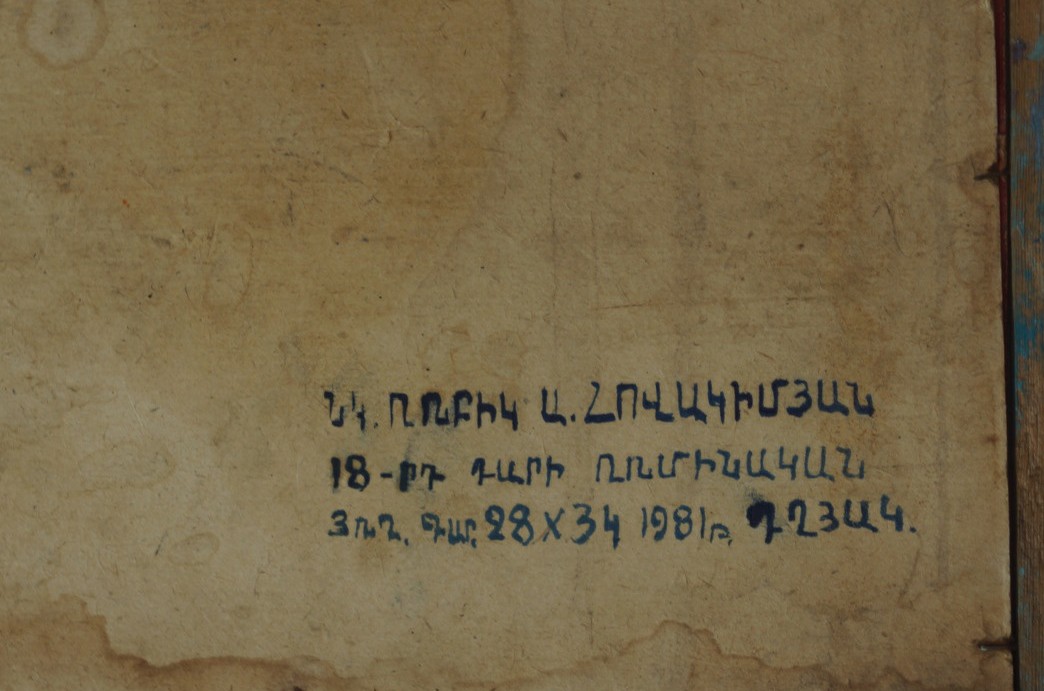 ՆԿ. ՌՈԲԻԿ Ա. ՀՈՎԱԿԻՄՅԱՆ
18-ՐԴ ԴԱՐԻ ՌՈՄԻՆԱԿԱՆ
28X34 1981թ. ԴՂՅԱԿ.